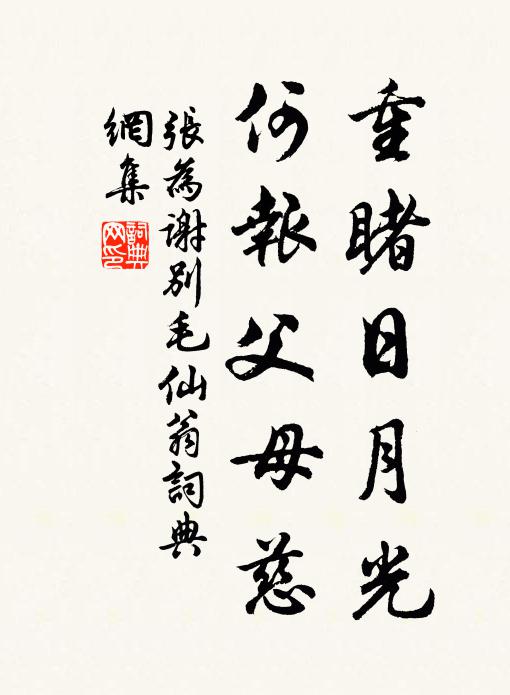 重睹日月光
何報父母慈
張為謝別毛仙翁詞典
網集
詞典
网印